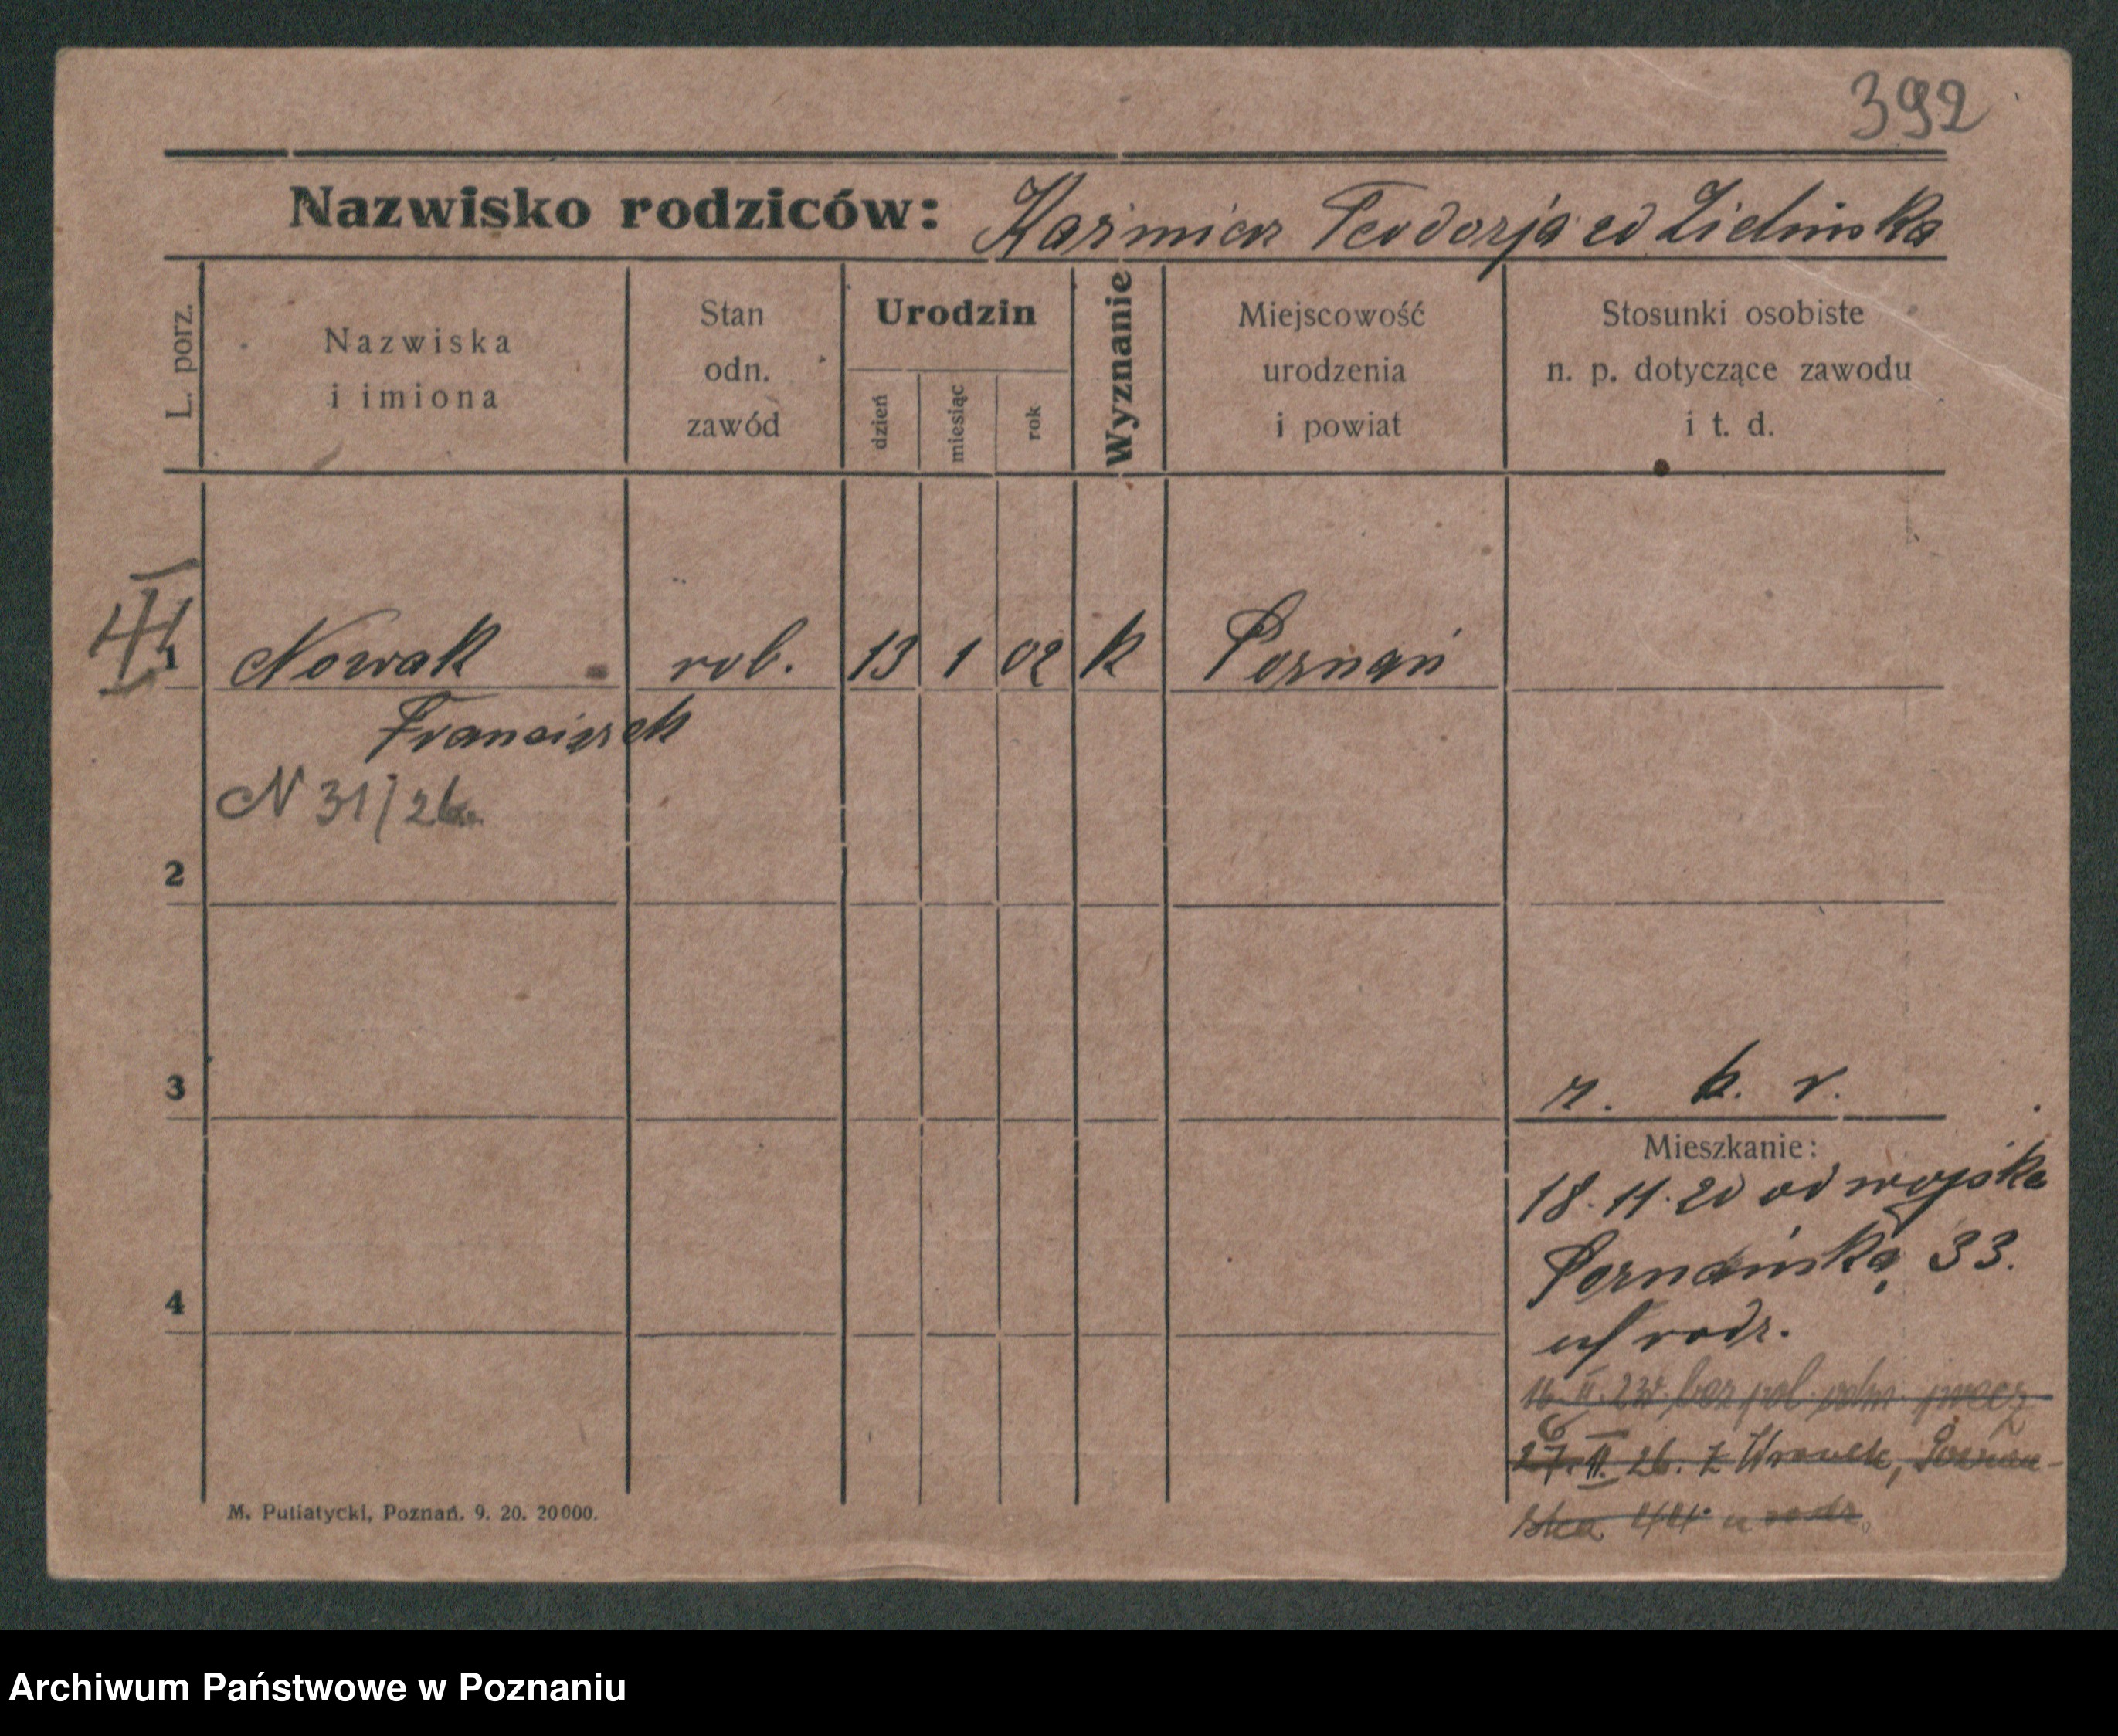 392
Nazwisko rodziców: Kaźmierz Teodozja zd Zielinska
L. porz.
Nazwiska
i imiona
Stan
odn.
zawód
Urodzin
dzień
miesiąc
rok
Wyznanie
Miejscowość
urodzenia
i powiat
Stosunki osobiste
n. p. dotyczące zawodu
i t. d.
III
1 Nowak rob. 13 1 02 k Poznań
Franciszek
N 31/26
2
3
r. k. r.
Mieszkanie:
18.11.20 od wojska
Poznańska 33.
u/rodz.
4
27. II. 26. z Wronek, Poznań-
ska 44 u rodz.
M. Putiatycki, Poznań. 9. 20. 20000.
Archiwum Państwowe w Poznaniu